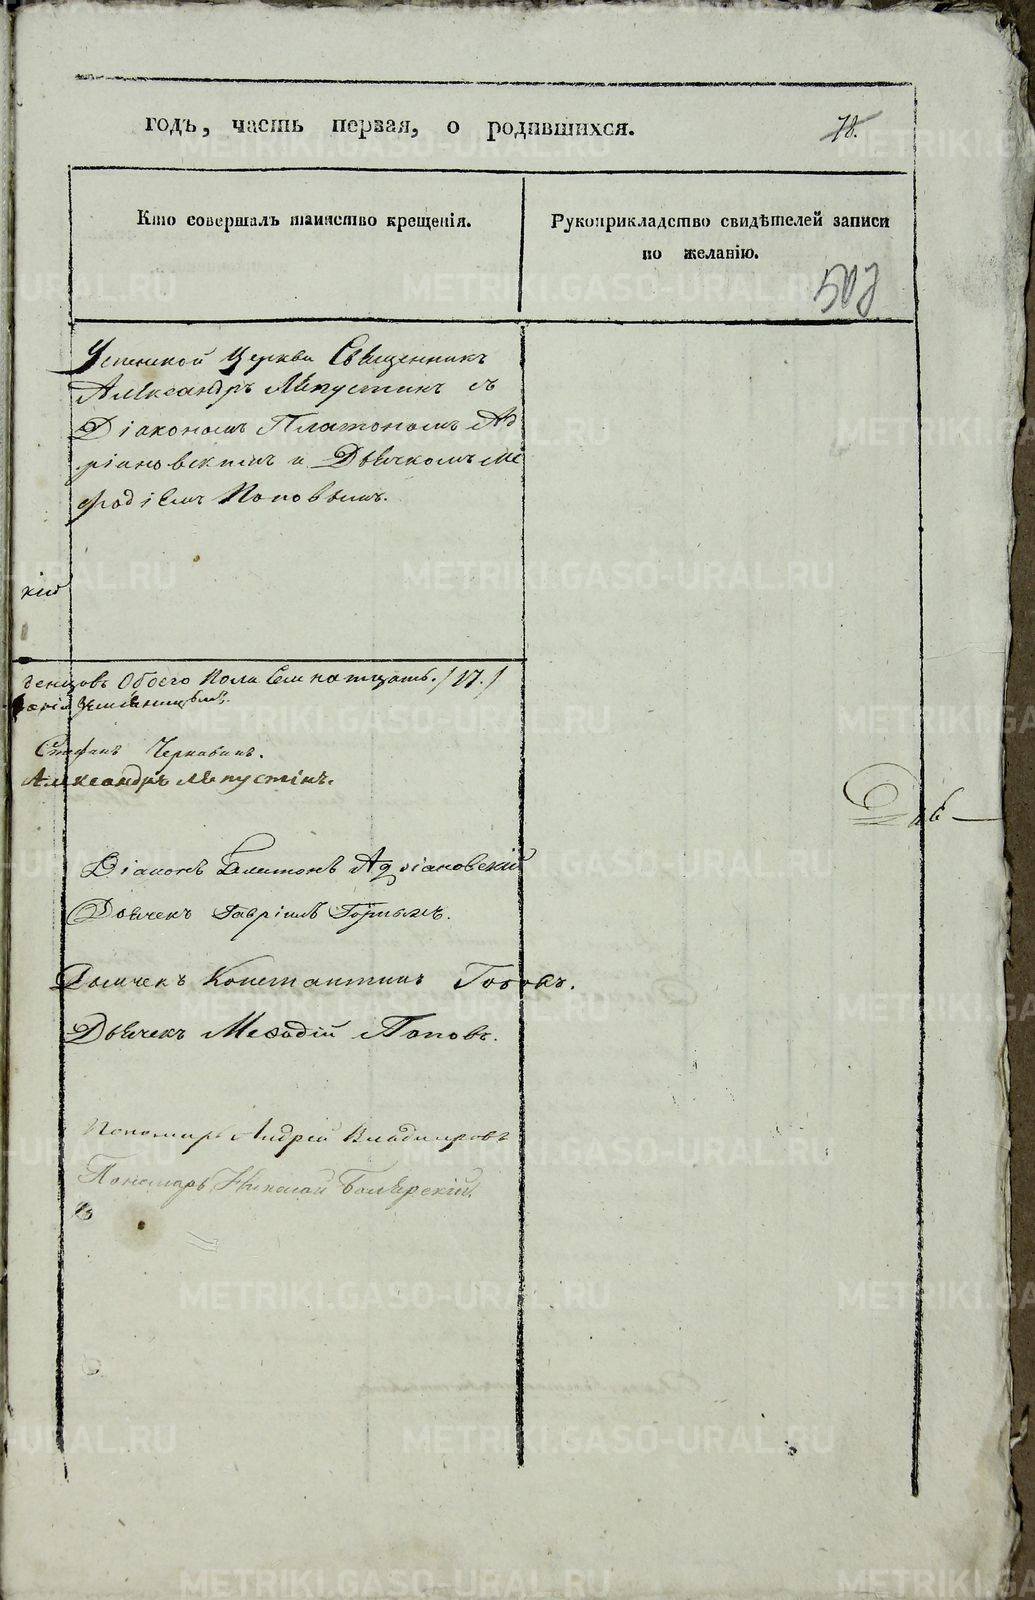 годъ, часть первая, о родившихся.
78.
Кто совершалъ таинство крещенія.
Рукоприкладство свидѣтелей записи
по желанію.
507
Успенской Церкви Священникъ
Александръ Лѣпустинъ съ
Діакономъ Платономъ Ад
ріановскимъ и Дьячкомъ Ме
фодіемъ Поповымъ.
кій
денцовъ Обоего Пола Семнатцать. /17./
Стефанъ Чернавинъ.
Александръ Лѣпустінъ.
Діаконъ Платонъ Адріановскій
Дьячекъ Гавріилъ
Дьячекъ Константинъ Поповъ.
Дьячекъ Меѳодій Поповъ.
Пономарь Андрей Владимировъ
Пономарь Николай
METRIKI.GASO-URAL.RU